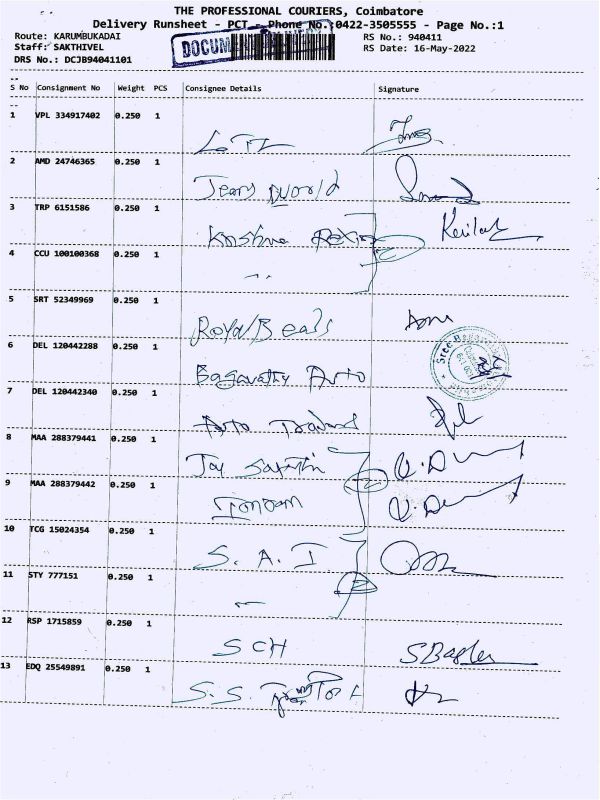 THE PROFESSIONAL COURIERS, Coimbatore
Delivery Runsheet - PCT - Phone No.:0422-3505555 - Page No.:1
Route: KARUMBUKADAI RS No.: 940411
Staff: SAKTHIVEL RS Date: 16-May-2022
DRS No.: DCJB94041101
DOCUM
S No Consignment No Weight PCS Consignee Details Signature
1 VPL 334917402 0.250 1
2 AMD 24746365 0.250 1
Jeans World
3 TRP 6151586 0.250 1
Krishna
4 CCU 100100368 0.250 1
5 SRT 52349969 0.250 1
Royal
6 DEL 120442288 0.250 1
Bagavathy Auto
7 DEL 120442340 0.250 1
Auto
8 MAA 288379441 0.250 1
Jay Sakthi
9 MAA 288379442 0.250 1
10 TCG 15024354 0.250 1
S. A. I
11 STY 777151 0.250 1
12 RSP 1715859 0.250 1
SCH
13 EDQ 25549891 0.250 1
S. S.